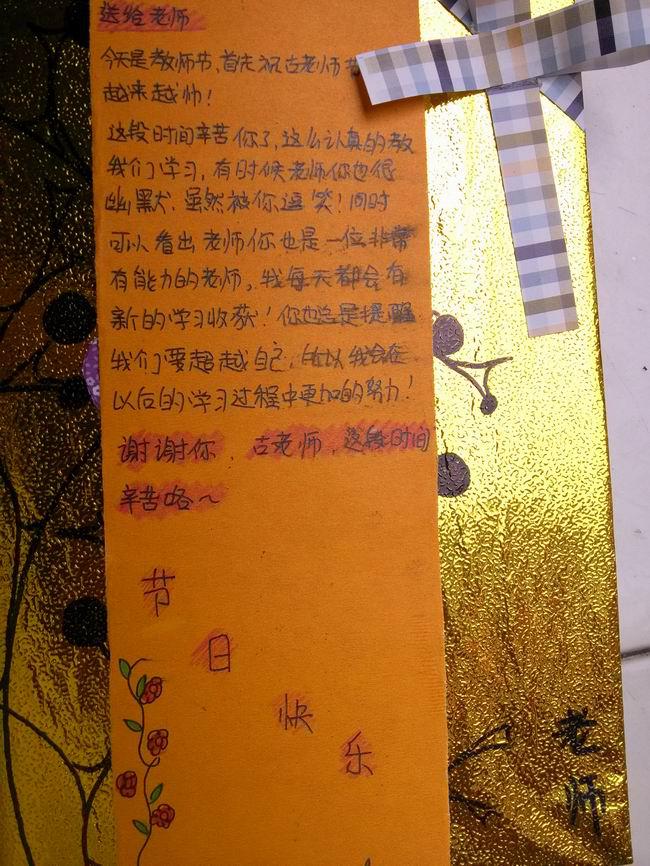 送给老师
今天是教师节,首先祝古老师节
越来越帅!
这段时间辛苦你了,这么认真的教
我们学习,有时候老师你也很
幽默,虽然被你逗笑!同时
可以看出老师你也是一位非常
有能力的老师,我每天都会有
新的学习收获!你也总是提醒
我们要超越自己,所以我会在
以后的学习过程中更加的努力!
谢谢你,古老师,这段时间
辛苦咯~
节
日
快
乐
老
师